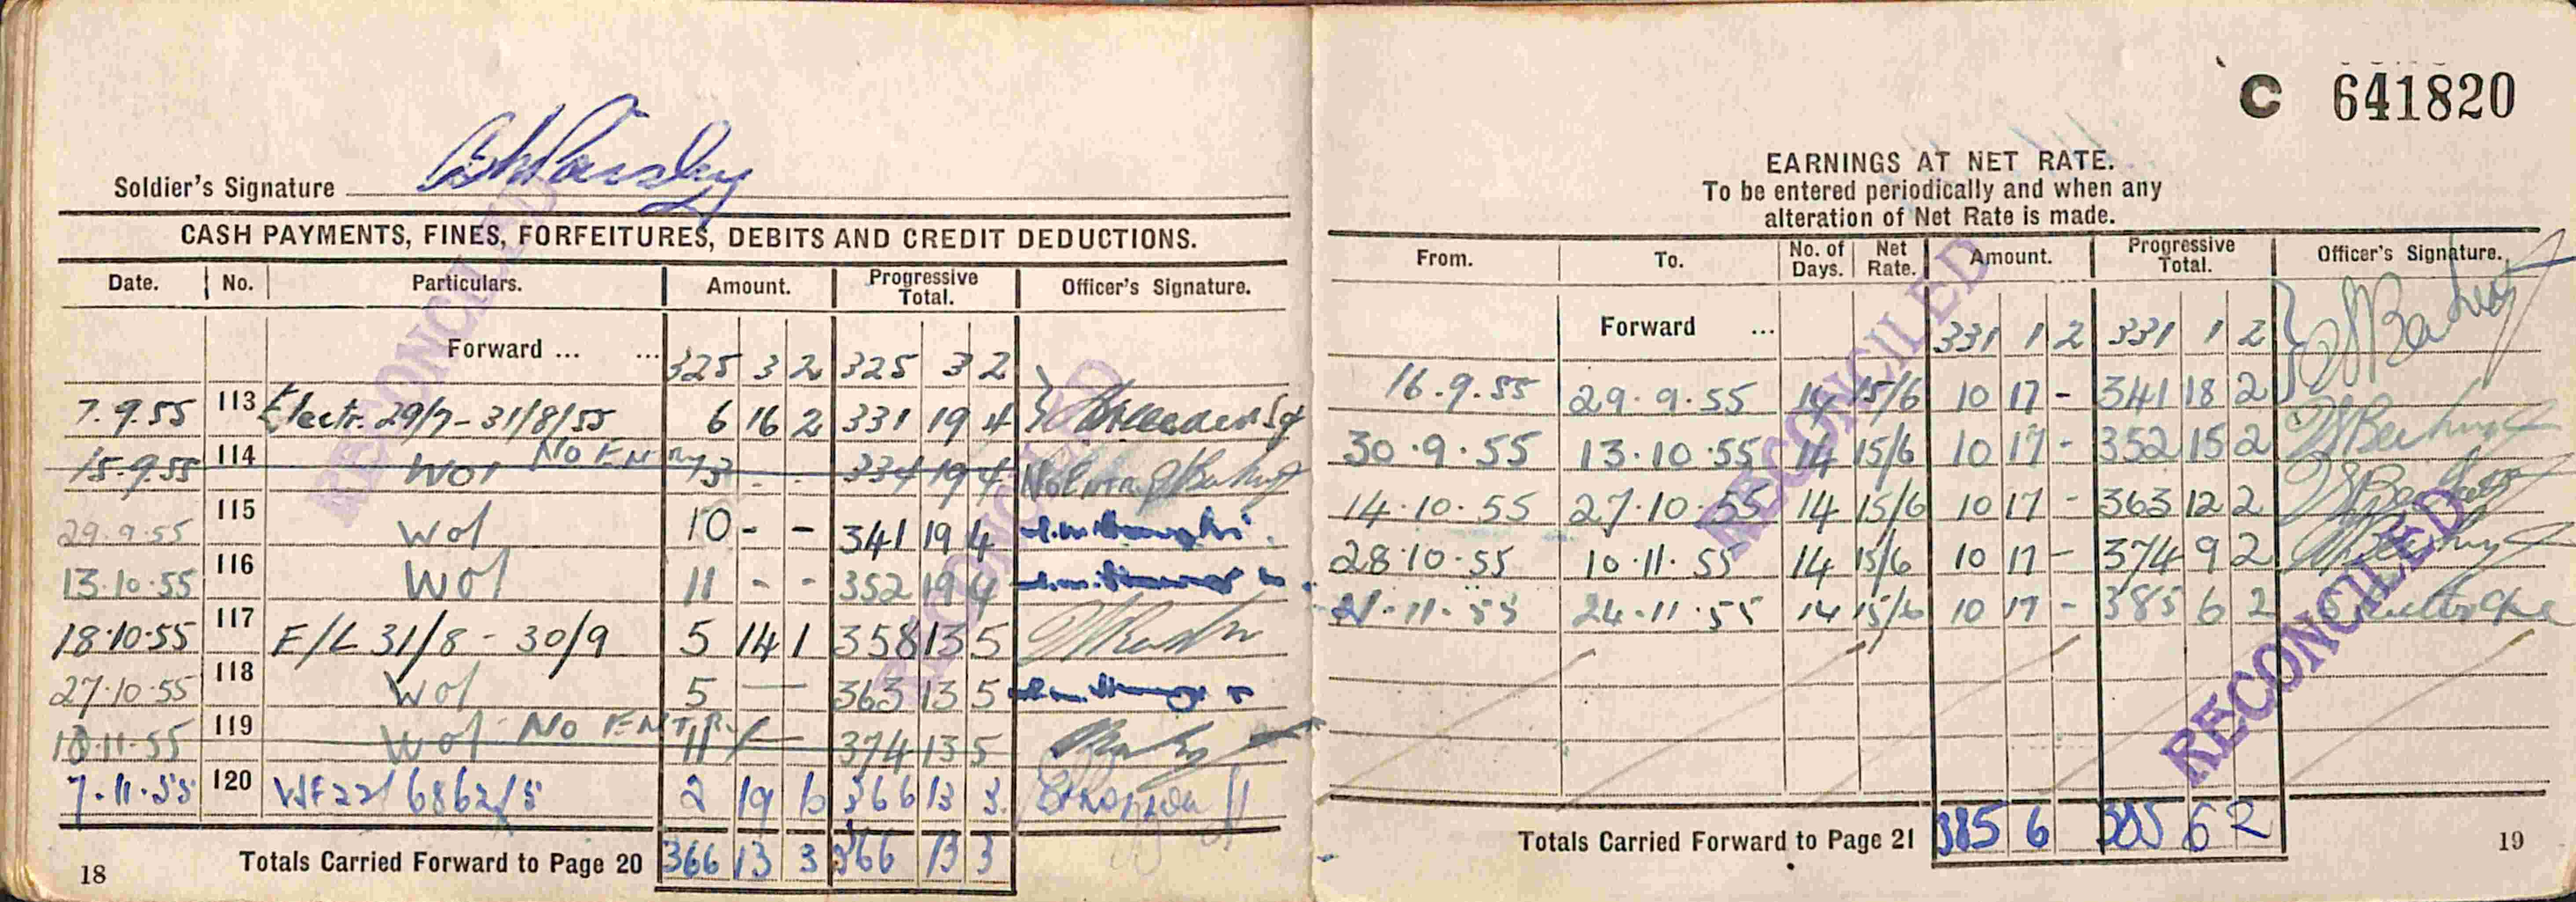 Soldier's Signature
CASH PAYMENTS, FINES, FORFEITURES, DEBITS AND CREDIT DEDUCTIONS.
Date. No. Particulars. Amount. Progressive Total. Officer's Signature.
Forward ... ... 325 3 2 325 3 2
7.9.55 113 Electr. 29/7 - 31/8/55 6 16 2 331 19 4
15.9.55 114 Wol No ENTRY 3 - - 334 19 4 No Entry
29.9.55 115 Wol 10 - - 341 19 4
13.10.55 116 Wol 11 - - 352 19 4
18.10.55 117 E/L 31/8 - 30/9 5 14 1 358 13 5
27.10.55 118 Wol 5 — 363 13 5
10.11.55 119 Wol No ENTRY 11 / — 374 13 5
7.11.55 120 6862/5 2 19 10 366 13 3
Totals Carried Forward to Page 20 366 13 3 366 13 3
18
RECONCILED
RECONCILED
C 641820
EARNINGS AT NET RATE.
To be entered periodically and when any
alteration of Net Rate is made.
From. To. No. of Days. Net Rate. Amount. Progressive Total. Officer's Signature.
Forward ... 331 1 2 331 1 2
16.9.55 29.9.55 14 15/6 10 17 - 341 18 2
30.9.55 13.10.55 14 15/6 10 17 - 352 15 2
14.10.55 27.10.55 14 15/6 10 17 - 363 12 2
28.10.55 10.11.55 14 15/6 10 17 - 374 9 2
24.11.55 14 15/6 10 17 - 385 6 2
Totals Carried Forward to Page 21 385 6 385 6 2
19
RECONCILED
RECONCILED